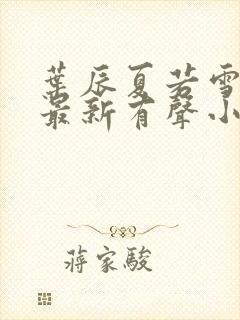 葉辰夏若雪
最新有聲小
蔣家駿